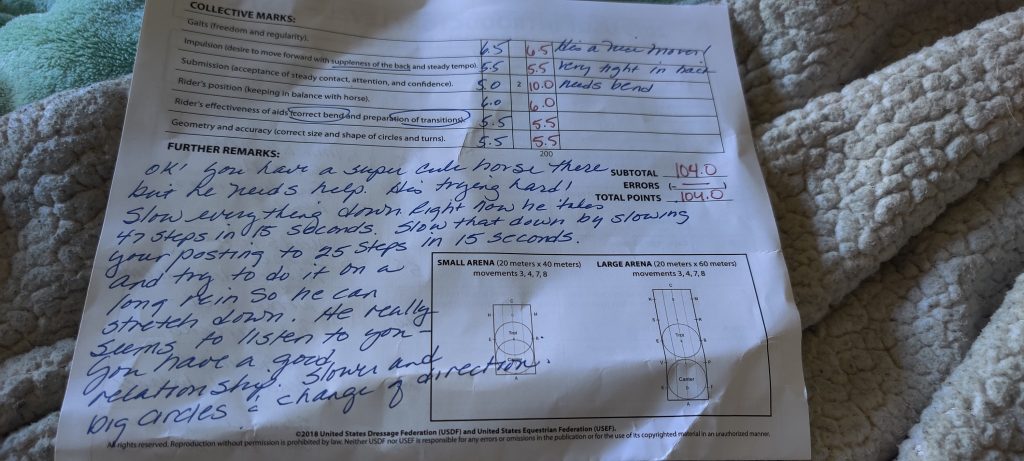 COLLECTIVE MARKS:
Gaits (freedom and regularity). 6.5 6.5 He's a nice mover!
Impulsion (desire to move forward with suppleness of the back and steady tempo). 5.5 5.5 Very tight in back
Submission (acceptance of steady contact, attention, and confidence). 5.0 2 10.0 needs bend
Rider's position (keeping in balance with horse). 6.0 6.0
Rider's effectiveness of aids (correct bend and preparation of transitions). 5.5 5.5
Geometry and accuracy (correct size and shape of circles and turns). 5.5 5.5
200
FURTHER REMARKS:
SUBTOTAL 104.0
ERRORS (- )
TOTAL POINTS 104.0
OK! You have a super cute horse there
but he needs help. He's trying hard!
Slow everything down. Right now he takes
47 steps in 15 seconds. Slow that down by slowing
your posting to 25 steps in 15 seconds.
and try to do it on a
long rein so he can
stretch down. He really
seems to listen to you -
You have a good
relationship. Slower and
big circles & change of directions.
SMALL ARENA (20 meters x 40 meters)
movements 3, 4, 7, 8
LARGE ARENA (20 meters x 60 meters)
movements 3, 4, 7, 8
C
H M
Trot
E B
A
C
H M
Trot
Canter
A
©2018 United States Dressage Federation (USDF) and United States Equestrian Federation (USEF).
All rights reserved. Reproduction without permission is prohibited by law. Neither USDF nor USEF is responsible for any errors or omissions in the publication or for the use of its copyrighted material in an unauthorized manner.